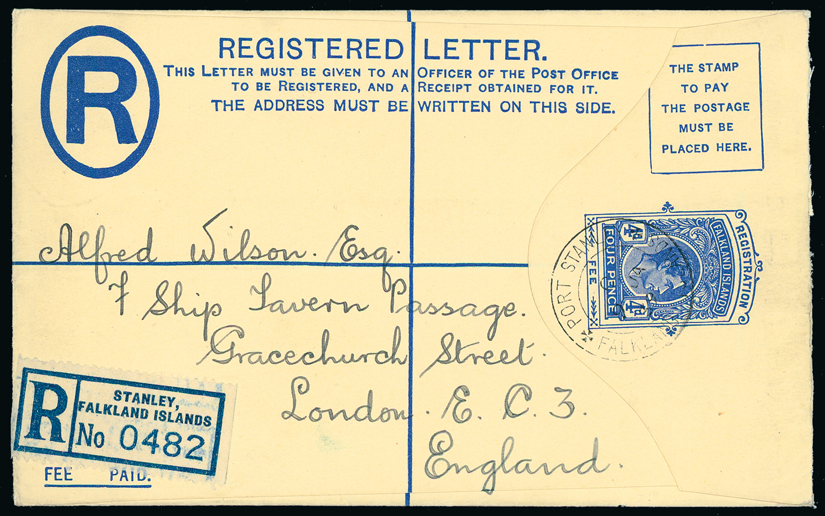 R
REGISTERED LETTER.
THIS LETTER MUST BE GIVEN TO AN OFFICER OF THE POST OFFICE
TO BE REGISTERED, AND A RECEIPT OBTAINED FOR IT.
THE ADDRESS MUST BE WRITTEN ON THIS SIDE.
THE STAMP
TO PAY
THE POSTAGE
MUST BE
PLACED HERE.
REGISTRATION
FALKLAND ISLANDS
4D 4D
FOUR PENCE
FEE
PORT STANLEY
Alfred Wilson. Esq.
7 Ship Tavern Passage.
Gracechurch Street.
London. E. C. 3.
England.
R
STANLEY,
FALKLAND ISLANDS
No 0482
FEE PAID.